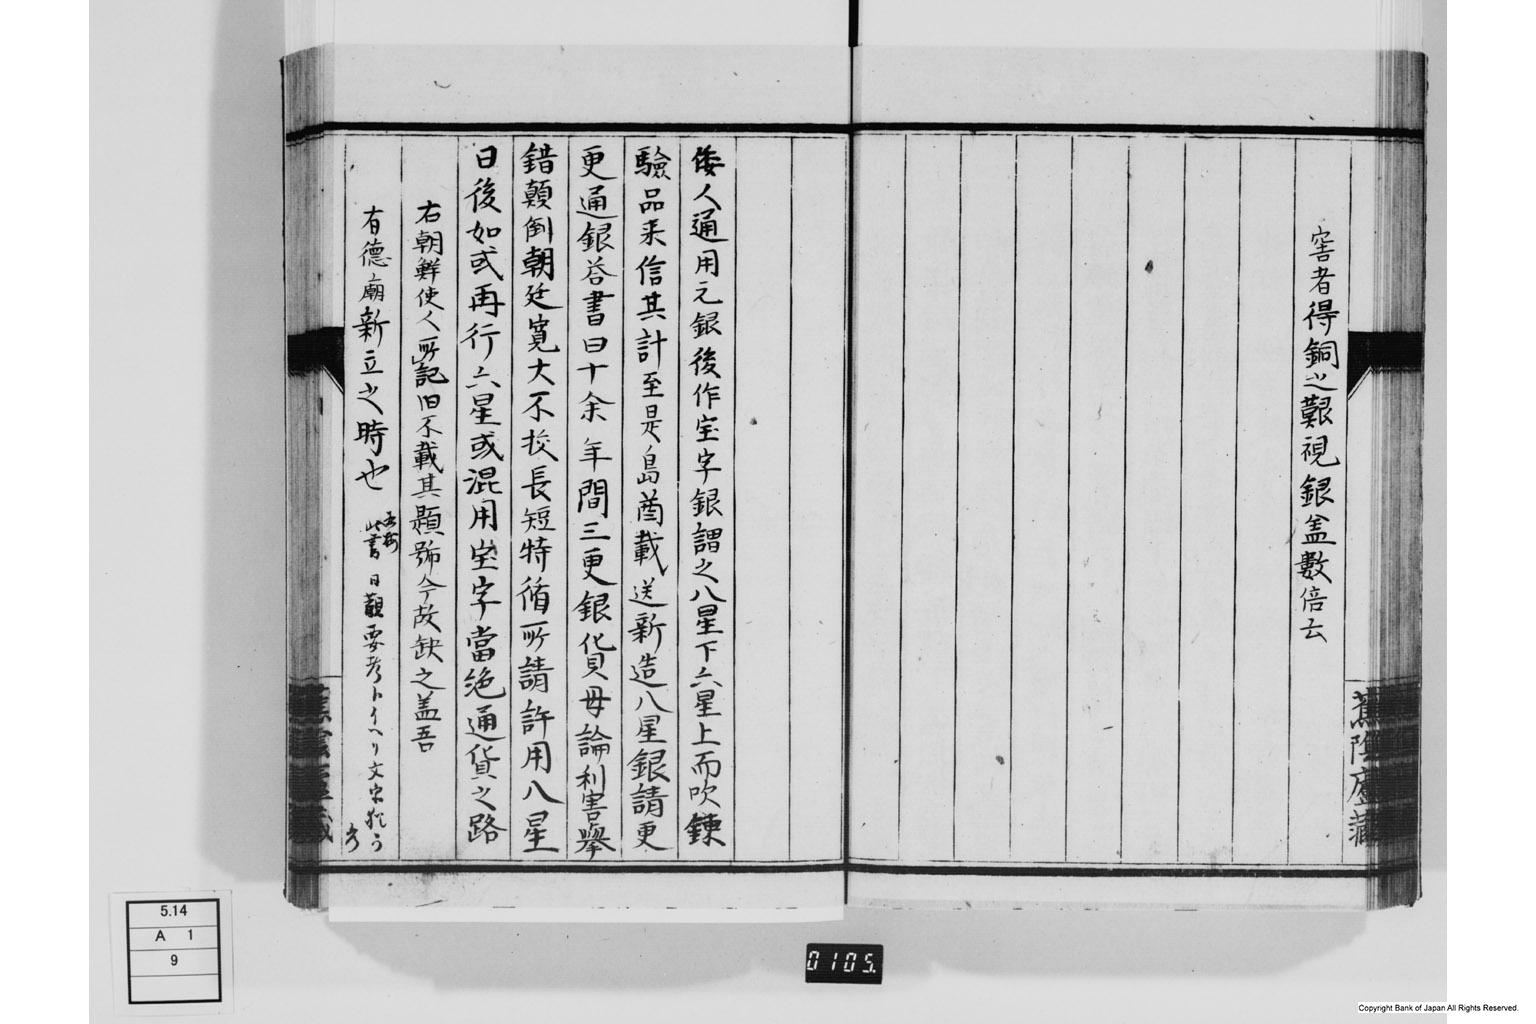 窖者得銅之艱視銀盖數倍云
蕉陰廬蔵
倭人通用元銀後作宝字銀謂之八星下六星上而吹錬
驗品来信其計至是島酋載送新造八星銀請更
更通銀答書曰十余年間三更銀貨毋論利害擧
錯顛倒朝廷寛大不挍長短特循所請許用八星
日後如或再行六星或混用宝字當絶通貨之路
右朝鮮使人所記旧不載其題號今故缺之盖吾
有德廟新立之時也 此書日観要考トイヘリ文
5.14
A 1
9
0105.
Copyright Bank of Japan All Rights Reserved.